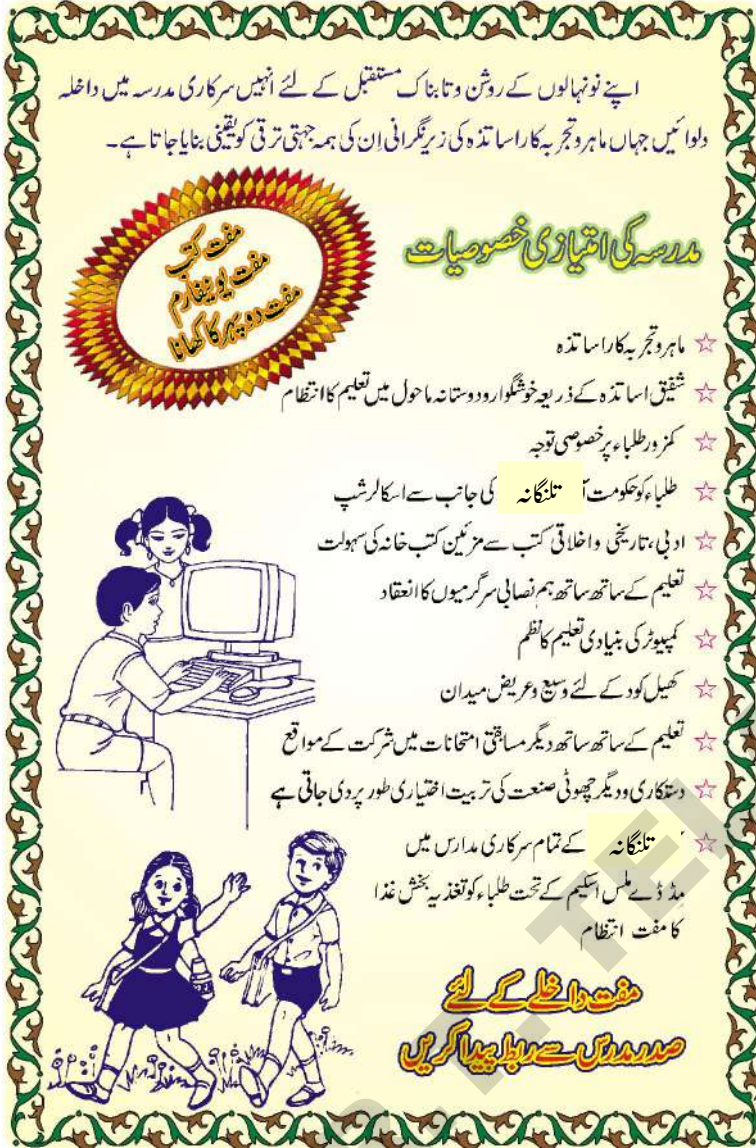 اپنے نونہالوں کے روشن و تابناک مستقبل کے لئے انہیں سرکاری مدرسہ میں داخلہ
دلوائیں جہاں ماہر و تجربہ کار اساتذہ کی زیر نگرانی اِن کی ہمہ جہتی ترقی کو یقینی بنایا جاتا ہے۔
مفت کتب
مفت یونیفارم
مفت دوپہر کا کھانا
مدرسہ کی امتیازی خصوصیات
☆ ماہر و تجربہ کار اساتذہ
☆ شفیق اساتذہ کے ذریعہ خوشگوار و دوستانہ ماحول میں تعلیم کا انتظام
☆ کمزور طلباء پر خصوصی توجہ
☆ طلباء کو حکومت تلنگانہ کی جانب سے اسکالرشپ
☆ ادبی، تاریخی و اخلاقی کتب سے مزئین کتب خانہ کی سہولت
☆ تعلیم کے ساتھ ساتھ ہم نصابی سرگرمیوں کا انعقاد
☆ کمپیوٹر کی بنیادی تعلیم کا نظم
☆ کھیل کود کے لئے وسیع و عریض میدان
☆ تعلیم کے ساتھ ساتھ دیگر مسابقتی امتحانات میں شرکت کے مواقع
☆ دستکاری و دیگر چھوٹی صنعت کی تربیت اختیاری طور پر دی جاتی ہے
☆ تلنگانہ کے تمام سرکاری مدارس میں
مڈ ڈے ملس اسکیم کے تحت طلباء کو تغذیہ بخش غذا
کا مفت انتظام
مفت داخلے کے لئے
صدر مدرس سے ربط پیدا کریں